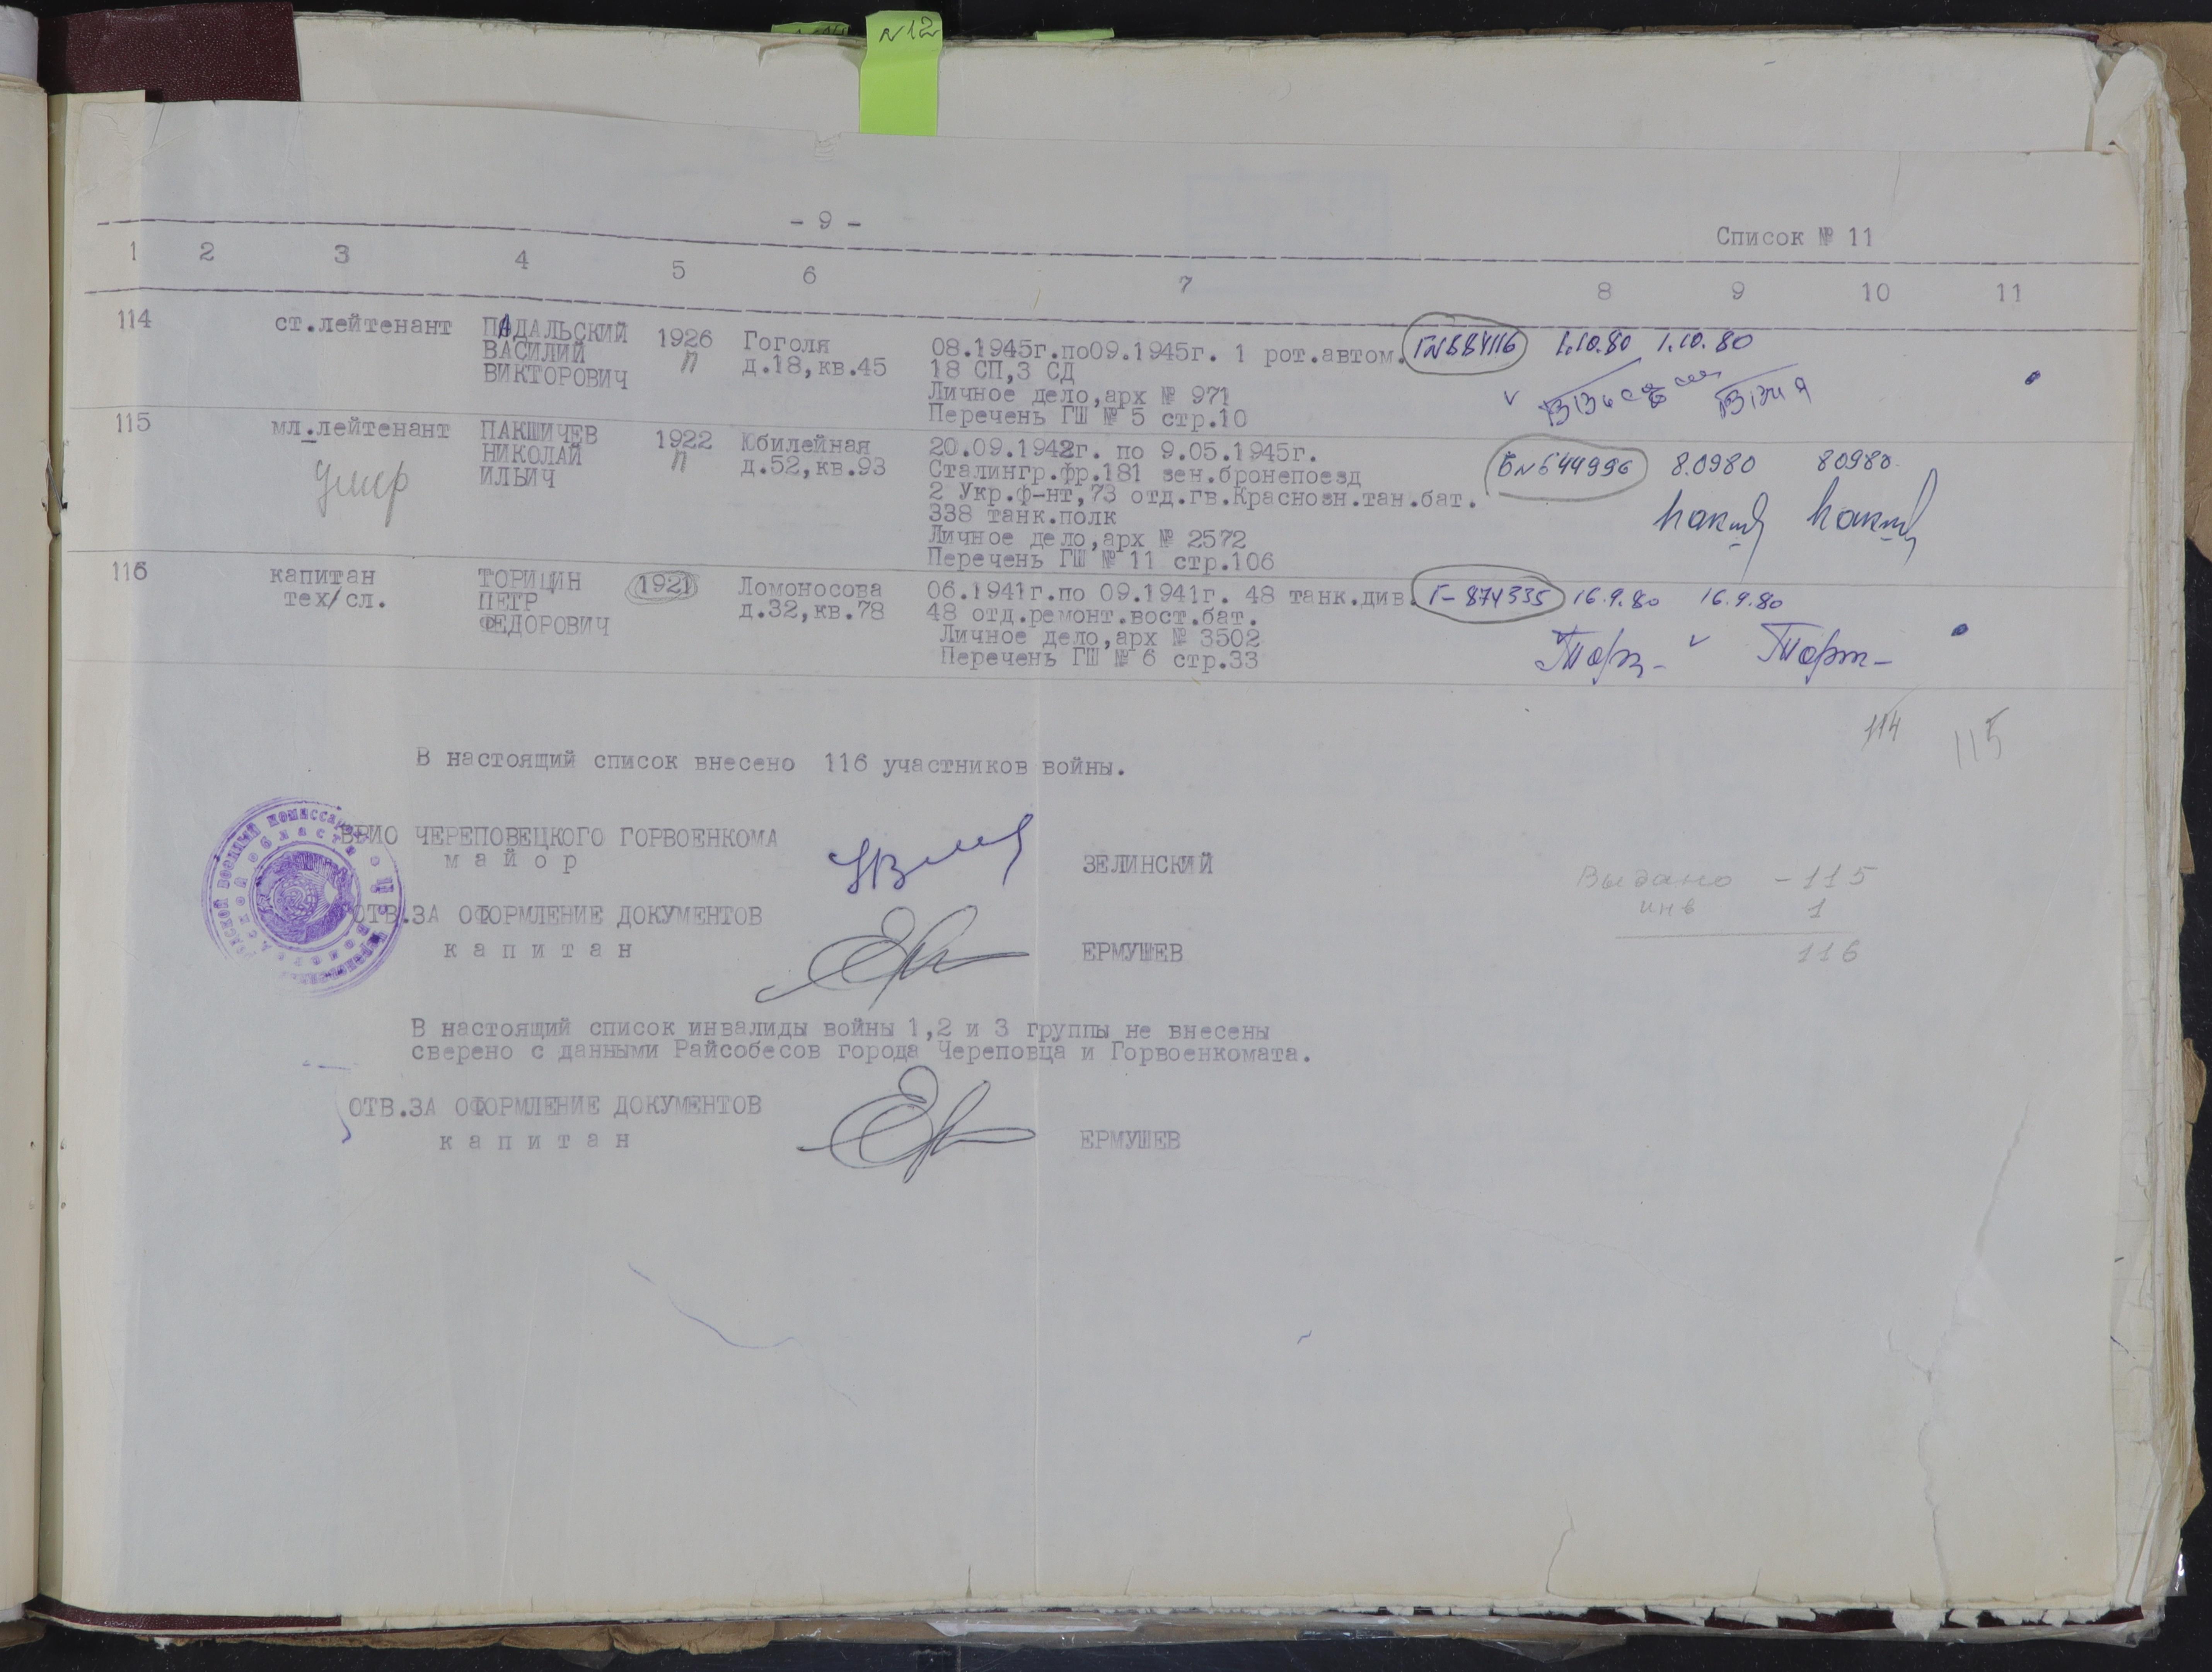 N12
- 9 -
Список № 11
1 2 3 4 5 6 7 8 9 10 11
114 ст.лейтенант ПАДАЛЬСКИЙ 1926 Гоголя 08.1945г.по09.1945г. 1 рот.автом. 1.10.80 1.10.80
ВАСИЛИЙ П д.18,кв.45 18 СП,3 СД
ВИКТОРОВИЧ Личное дело,арх № 971
Перечень ГШ № 5 стр.10
115 мл.лейтенант ПАКШИЧЕВ 1922 Юбилейная 20.09.1942г. по 9.05.1945г. Б№644996 8.0980 80980
умер НИКОЛАЙ П д.52,кв.93 Сталингр.фр.181 зен.бронепоезд
ИЛЬИЧ 2 Укр.ф-нт,73 отд.гв.Краснозн.тан.бат.
338 танк.полк
Личное дело,арх № 2572
Перечень ГШ № 11 стр.106
116 капитан ТОРИЦИН 1921 Ломоносова 06.1941г.по 09.1941г. 48 танк.див. Г-874335 16.9.80 16.9.80
тех/сл. ПЕТР д.32,кв.78 48 отд.ремонт.вост.бат.
ФЕДОРОВИЧ Личное дело,арх № 3502
Перечень ГШ № 6 стр.33
114 115
В настоящий список внесено 116 участников войны.
ВРИО ЧЕРЕПОВЕЦКОГО ГОРВОЕНКОМА
майор ЗЕЛИНСКИЙ
Выдано - 115
инв 1
116
ОТВ.ЗА ОФОРМЛЕНИЕ ДОКУМЕНТОВ
капитан ЕРМУШЕВ
В настоящий список инвалиды войны 1,2 и 3 группы не внесены
сверено с данными Райсобесов города Череповца и Горвоенкомата.
ОТВ.ЗА ОФОРМЛЕНИЕ ДОКУМЕНТОВ
капитан ЕРМУШЕВ